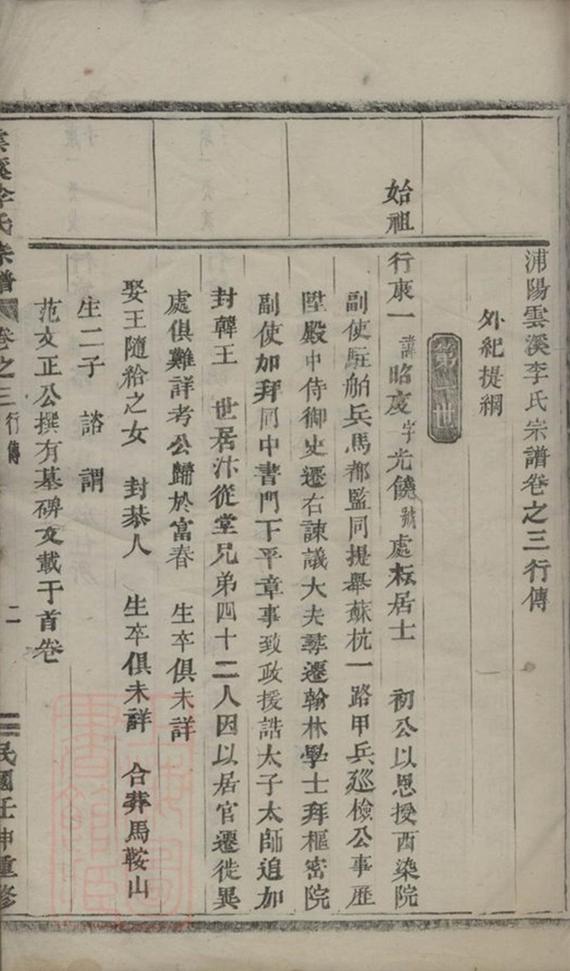 浦陽雲溪李氏宗譜卷之三行傳
外紀提綱
第一世
始祖
行康一 諱昭度字光饒號處耘居士 初公以恩授西染院
副使駐舶兵馬都監同提舉蘇杭一路甲兵廵檢公事歷
陞殿中侍御史遷右諫議大夫尋遷翰林學士拜樞密院
副使加拜同中書門下平章事致政授誥太子太師追加
封韓王 世居汴從堂兄弟四十二人因以居官遷徙異
處俱難詳考公歸於富春 生卒俱未詳
娶王隨給之女 封恭人 生卒俱未詳 合葬馬鞍山
生二子 諮 謂
范文正公撰有墓碑文載于首卷
雲溪李氏宗譜 卷之三 行傳 二 民國壬申重修